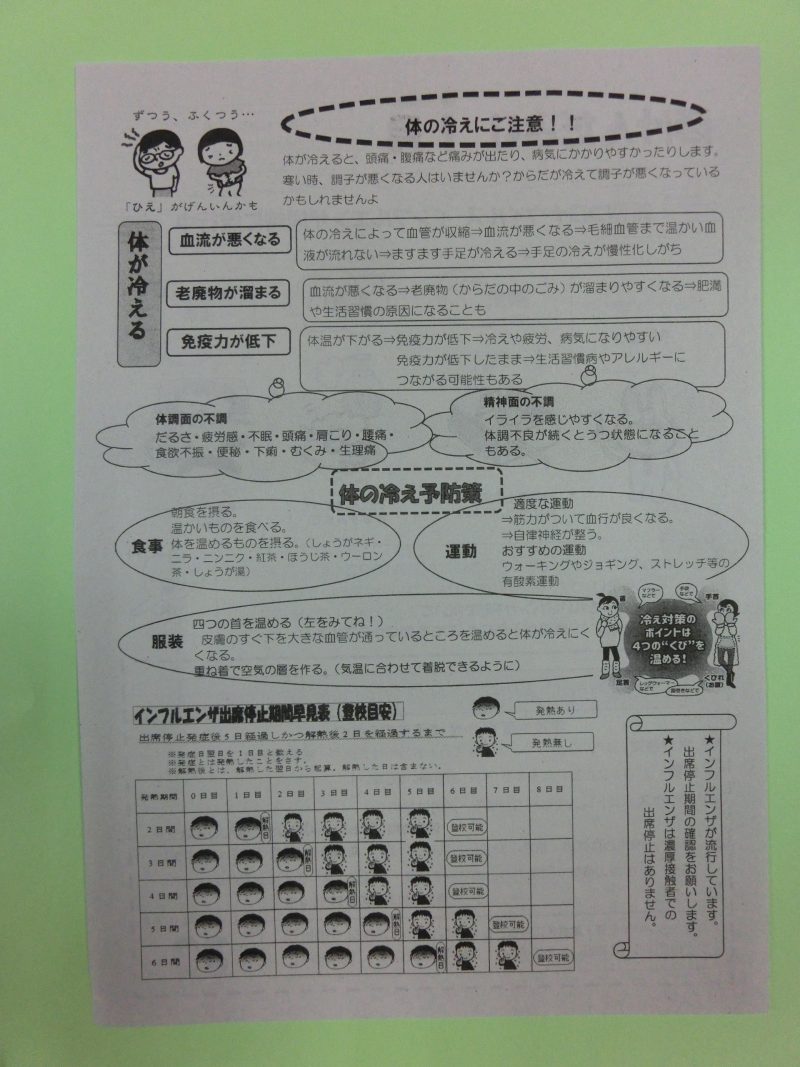 ずつう、ふくつう…
「ひえ」がげんいんかも
体の冷えにご注意！！
体が冷えると、頭痛・腹痛など痛みが出たり、病気にかかりやすかったりします。
寒い時、調子が悪くなる人はいませんか？からだが冷えて調子が悪くなっている
かもしれませんよ
体が冷える
血流が悪くなる
体の冷えによって血管が収縮⇒血流が悪くなる⇒毛細血管まで温かい血
液が流れない⇒ますます手足が冷える⇒手足の冷えが慢性化しがち
老廃物が溜まる
血流が悪くなる⇒老廃物（からだの中のごみ）が溜まりやすくなる⇒肥満
や生活習慣の原因になることも
免疫力が低下
体温が下がる⇒免疫力が低下⇒冷えや疲労、病気になりやすい
免疫力が低下したまま⇒生活習慣病やアレルギーに
つながる可能性もある
体調面の不調
だるさ・疲労感・不眠・頭痛・肩こり・腰痛・
食欲不振・便秘・下痢・むくみ・生理痛
精神面の不調
イライラを感じやすくなる。
体調不良が続くとうつ状態になること
もある。
体の冷え予防策
食事
朝食を摂る。
温かいものを食べる。
体を温めるものを摂る。（しょうがネギ・
ニラ・ニンニク・紅茶・ほうじ茶・ウーロン
茶・しょうが湯）
運動
適度な運動
⇒筋力がついて血行が良くなる。
⇒自律神経が整う。
おすすめの運動
ウォーキングやジョギング、ストレッチ等の
有酸素運動
服装
四つの首を温める（左をみてね！）
皮膚のすぐ下を大きな血管が通っているところを温めると体が冷えにく
くなる。
重ね着で空気の層を作る。（気温に合わせて着脱できるように）
首
マフラーなどで
手袋などで
手首
冷え対策の
ポイントは
4つの“くび”を
温める！
足首
レッグウォーマーなどで
腹巻きなどで
くびれ
（お腹）
インフルエンザ出席停止期間早見表（登校目安）
発熱あり
発熱無し
出席停止発症後５日経過しかつ解熱後２日を経過するまで
※発症日翌日を１日目と数える
※発症とは発熱したことをさす。
※解熱後とは、解熱した翌日から起算、解熱した日は含まない。
発熱期間 0日目 1日目 2日目 3日目 4日目 5日目 6日目 7日目 8日目
2日間 解熱日 登校可能
3日間 解熱日 登校可能
4日間 解熱日 登校可能
5日間 解熱日 登校可能
6日間 解熱日 登校可能
★インフルエンザが流行しています。
出席停止期間の確認をお願いします。
★インフルエンザは濃厚接触者での
出席停止はありません。